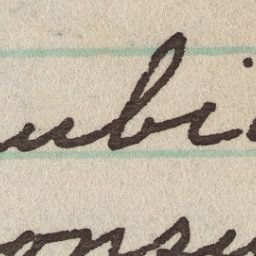 ubi
onsu